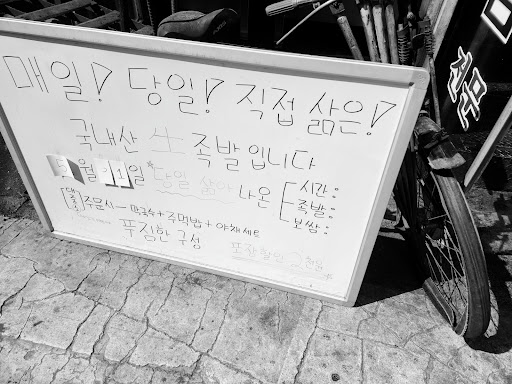 매일! 당일! 직접 삶은!
국내산 生 족발입니다
월 21일 *당일 삶아 나온 [시간:
족발:
보쌈:
주문시 → 막국수 + 주먹밥 + 야채세트
푸짐한 구성
포장할인